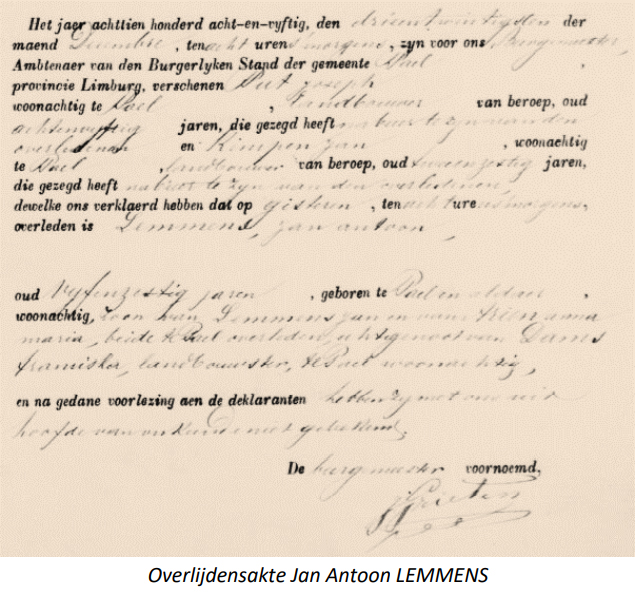 Het jaer achttien honderd acht-en-vyftig, den drientwintigsten der
maend Decembre, ten acht uren s'morgens, zyn voor ons Burgemeester,
Ambtenaer van den Burgerlyken Stand der gemeente Pael
provincie Limburg, verschenen Put Joseph
woonachtig te Pael, Landbouwer van beroep, oud
achtenvyftig jaren, die gezegd heeft nabuer te zyn van den
overledenen en Kimpen Jan, woonachtig
te Pael, landbouwer van beroep, oud tweenzestig jaren,
die gezegd heeft nabuer te zyn van den overledenen,
dewelke ons verklaerd hebben dat op gisteren, ten acht uren s'morgens,
overleden is Lemmens, jan antoon,
oud vyfenzestig jaren, geboren te Pael en aldaer
woonachtig, zoon van Lemmens jan en van Trien anna
maria, beide te Pael overleden, echtgenoot van Dams
franciska, landbouwster, te Pael woonachtig,
en na gedane voorlezing aen de deklaranten hebben zy met ons uit
hoofde van onkunde niet geteekend.
De burgemeester voornoemd,
Grieten
Overlijdensakte Jan Antoon LEMMENS